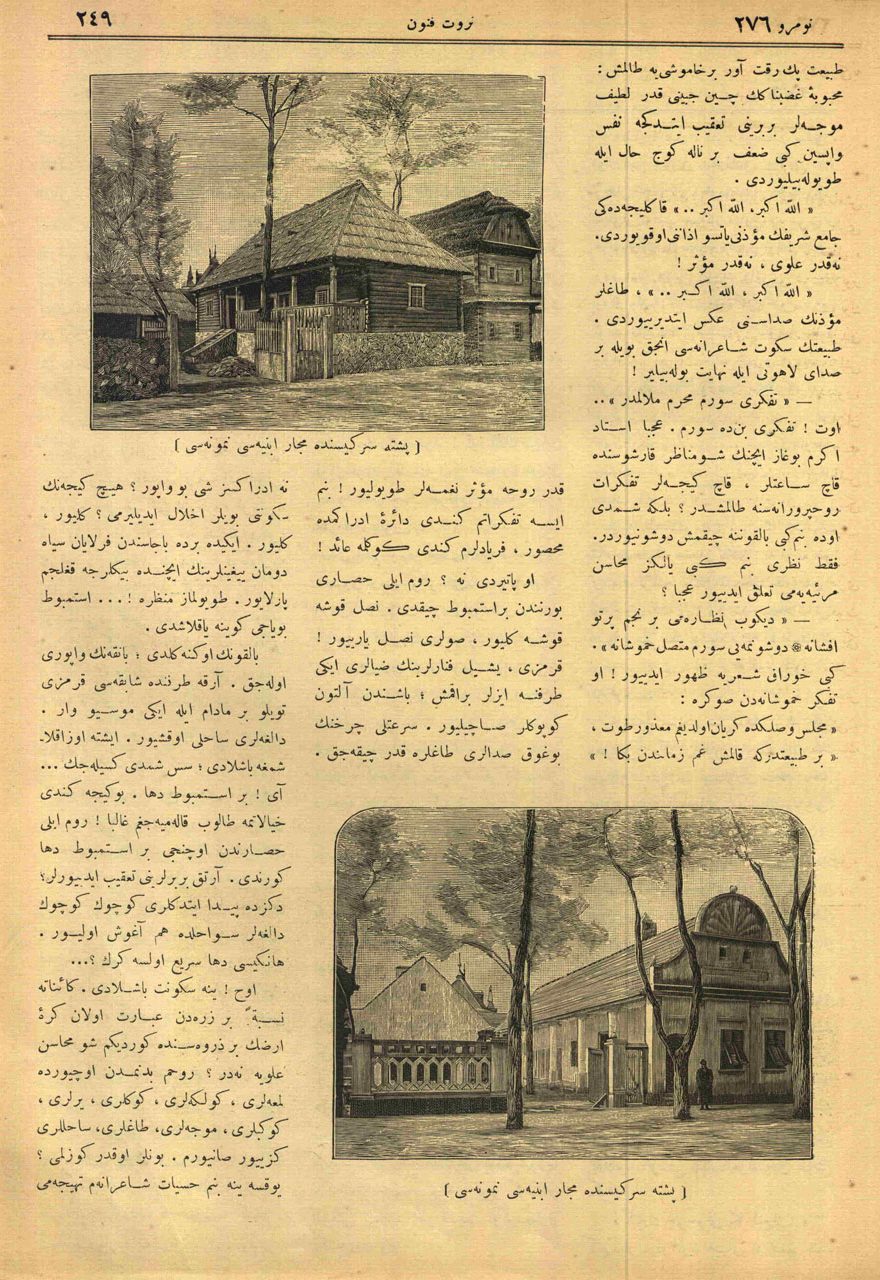 نومرو ٢٧٦
ثروت فنون
٢٤٩
طبیعت پك رقت آور بر خاموشی‌یه طالمش :
محبوبۀ غضبناكك چین جبینی قدر لطیف
موجه‌لر بربرینی تعقیب ایتدكجه نفس
واپسین كبی ضعف بر ناله كوج حال ایله
طویوله‌بیلیوردی .
« الله اكبر، الله اكبر .. » قاكلیجه‌ده‌كی
جامع شریفك مؤذنی یاتسو اذاننی اوقویوردی.
نه‌قدر علوی ، نه‌قدر مؤثر !
« الله اكبر ، الله اكبر .. » ، طاغلر
مؤذنك صداسنی عكس ایتدیرییوردی .
طبیعتك سكوت شاعرانه‌سی انجق بویله بر
صدای لاهوتی ایله نهایت بوله‌بیلیر !
— « تفكری سورم محرم ملالمدر » ..
اوت ! تفكری بن‌ده سورم . عجبا استاد
اكرم بوغاز ایچنك شومناظر قارشوسنده
قاچ ساعتلر ، قاچ كیجه‌لر تفكرات
روحپرورانه‌سنه طالمشدر ؟ بلكه شمدی
اوده بنم‌كبی بالقوننه چیقمش دوشونیوردر.
فقط نظری بنم كبی یالكز محاسن
مرئیه‌یه‌می تعلق ایدییور عجبا ؟
— « دیكوب نظاره‌می بر نجم پرتو
افشانه * دوشونمه‌یی سورم متصل خموشانه » .
كبی خوراق شعریه ظهور ایدییور! او
تفكر خموشانه‌دن صوكره :
« مجلس وصلكده كریان اولدیغم معذور طوت ،
« بر طبیعتدركه قالمش غم زمانندن بكا ! »
[ پشته سركیسنده مجار ابنیه‌سی نمونه‌سی ]
قدر روحه مؤثر نغمه‌لر طویولیور ! بنم
ایسه تفكراتم كندی دائرۀ ادراكمده
محصور ، فریادلرم كندی كوكلمه عائد !
او پاتیردی نه ؟ روم ایلی حصاری
بورنندن براستمبوط چیقدی . نصل قوشه
قوشه كلیور ، صولری نصل یارییور !
قرمزی ، یشیل فنارلرینك ضیالری ایكی
طرفنه ایزلر براقمش ؛ باشندن آلتون
كوپوكلر صاچیلیور . سرعتلی چرخنك
بوغوق صدالری طاغلره قدر چیقه‌جق .
نه ادراكسز شی بو واپور ؟ هیچ كیجه‌نك
سكوتی بویلر اخلال ایدیلیرمی ؟ كلیور ،
كلیور . ایكیده برده باجاسندن فرلایان سیاه
دومان ییغینلرینك ایچنده بیكلرجه قغلجم
پارلایور . طویولماز منظره !... استمبوط
بویاجی كوینه یاقلاشدی .
بالقونك اوكنه‌كلدی ؛ بانقه‌نك واپوری
اوله‌جق . آرقه طرفنده شابقه‌سی قرمزی
تویلو بر مادام ایله ایكی موسیو وار .
دالغه‌لری ساحلی اوقشیور . ایشته اوزاقلا-
شمغه باشلادی ؛ سس شمدی كسیله‌جك ...
آی ! بر استمبوط دها . بوكیجه كندی
خیالاتمه طالوب قاله‌میه‌جغم غالبا ! روم ایلی
حصارندن اوچنجی بر استمبوط دها
كورندی . آرتق بربرلرینی تعقیب ایدییورلر؟
دكزده پیدا ایتدكلری كوچوك كوچوك
دالغه‌لر سواحلده هم آغوش اولیور .
هانكیسی دها سریع اولسه كرك ؟...
اوح ! ینه سكونت باشلادی . كائناته
نسبةً بر زره‌دن عبارت اولان كرۀ
ارضك بر ذروه‌سنده كوردیكم شو محاسن
علویه نه‌در ؟ روحم بدنمدن اوچیورده
لمعه‌لری ، كولكه‌لری ، كوكلری ، یرلری ،
كوكبلری ، موجه‌لری، طاغلری، ساحللری
كزییور صانیورم . بونلر اوقدر كوزلمی ؟
یوقسه ینه بنم حسیات شاعرانه‌م تهیجه‌می
[ پشته سركیسنده مجار ابنیه‌سی نمونه‌سی ]